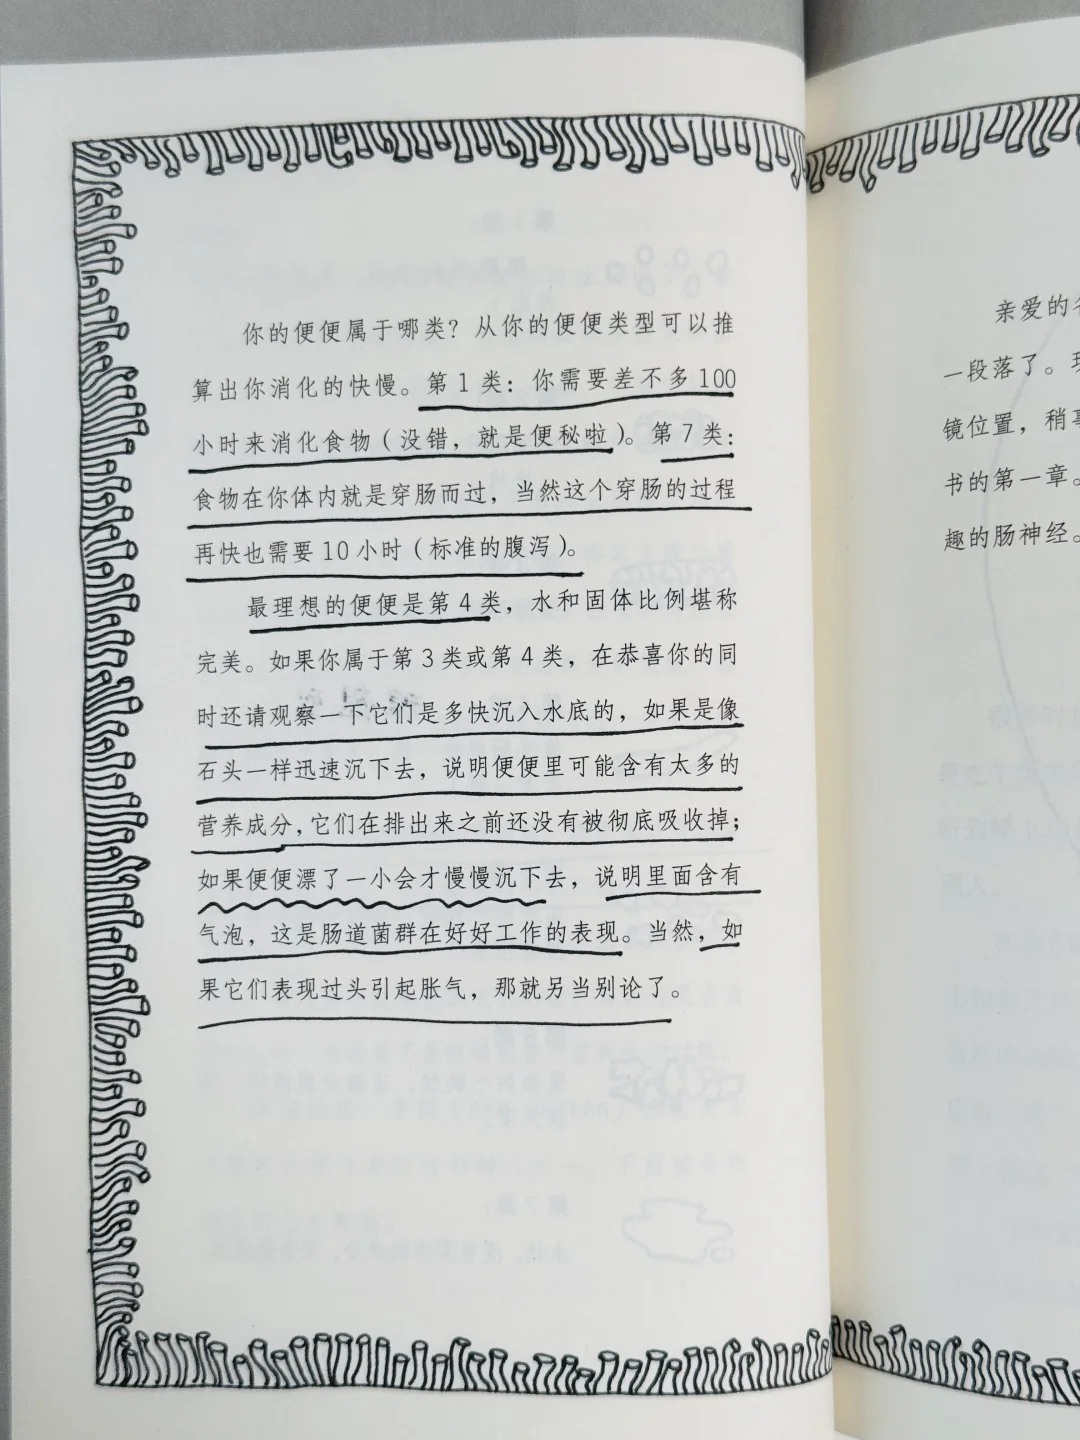 你的便便属于哪类？从你的便便类型可以推
算出你消化的快慢。第1类：你需要差不多100
小时来消化食物（没错，就是便秘啦）。第7类：
食物在你体内就是穿肠而过，当然这个穿肠的过程
再快也需要10小时（标准的腹泻）。
最理想的便便是第4类，水和固体比例堪称
完美。如果你属于第3类或第4类，在恭喜你的同
时还请观察一下它们是多快沉入水底的，如果是像
石头一样迅速沉下去，说明便便里可能含有太多的
营养成分，它们在排出来之前还没有被彻底吸收掉；
如果便便漂了一小会才慢慢沉下去，说明里面含有
气泡，这是肠道菌群在好好工作的表现。当然，如
果它们表现过头引起胀气，那就另当别论了。
亲爱的
一段落了。
镜位置，稍
书的第一章。
趣的肠神经。